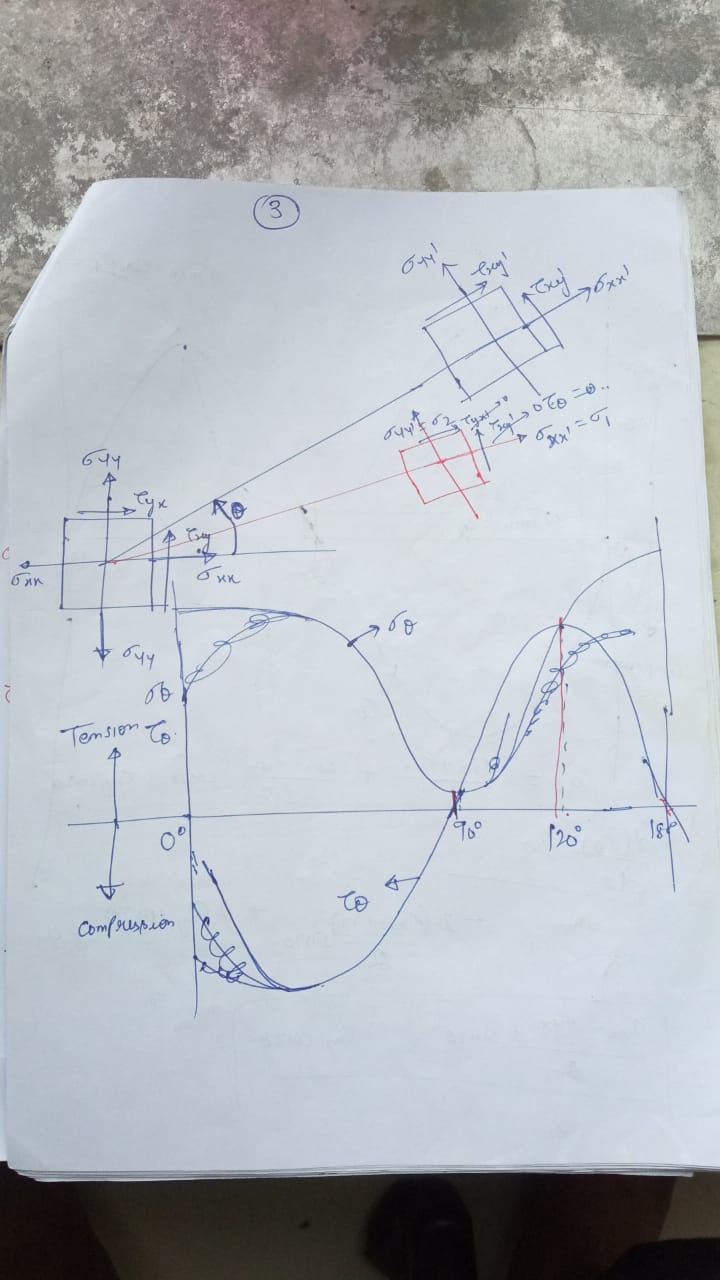 3
σyy' τxy' τxy' σxx'
σyy' = σ2 τyx' → 0 τxy' → 0 τθ = 0..
σxx' = σ1
σyy
τyx
θ
τxy
σxx σxx
σyy
σθ
σθ
Tension τθ.
0° 90° 120° 180°
τθ
Compression